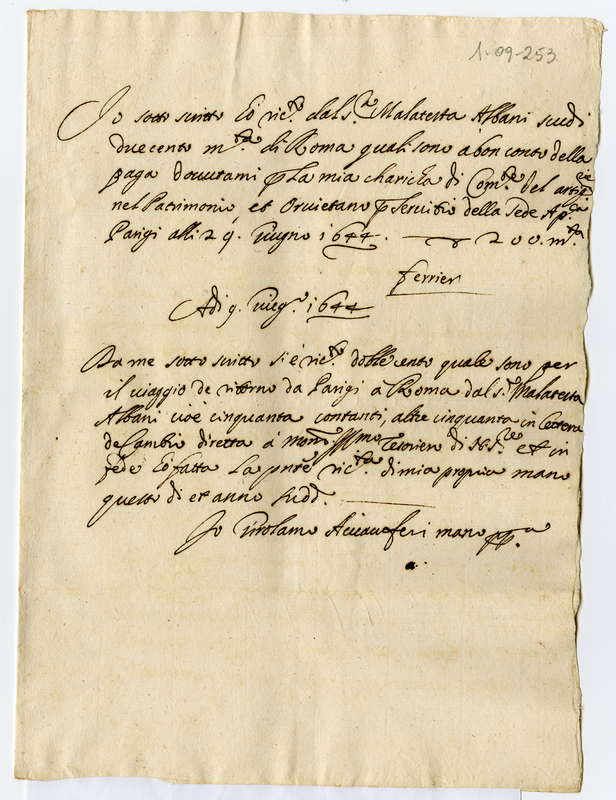 1-09-253
Io sotto scritto hò ric.to dal s.r Malatesta Albani scudi
duecento m.ta di Roma quali sono à bon conto della
paga dovutami p la mia charicha di Com.rio del artig.rie
nel Patrimonio, et Orvietano p servitio della Sede Ap.ca
Parigi alli 29. giugno 1644. 200. m.ta
ferrier
Adi 9. giug.o 1644
Da me sotto scritto si è ric.to doble cento quale sono per
il viaggio de ritorno da Parigi à Roma dal s.r Malatesta
Albani cioè cinquanta contanti, altre cinquanta in lettera
de Cambio diretta à Mons.r Ill.mo Tesoriero di N. S.re et in
fede hò fatta la pnte ric.ta di mia propria mano
questo di et anno sudd.
Io Girolamo mano pp.a